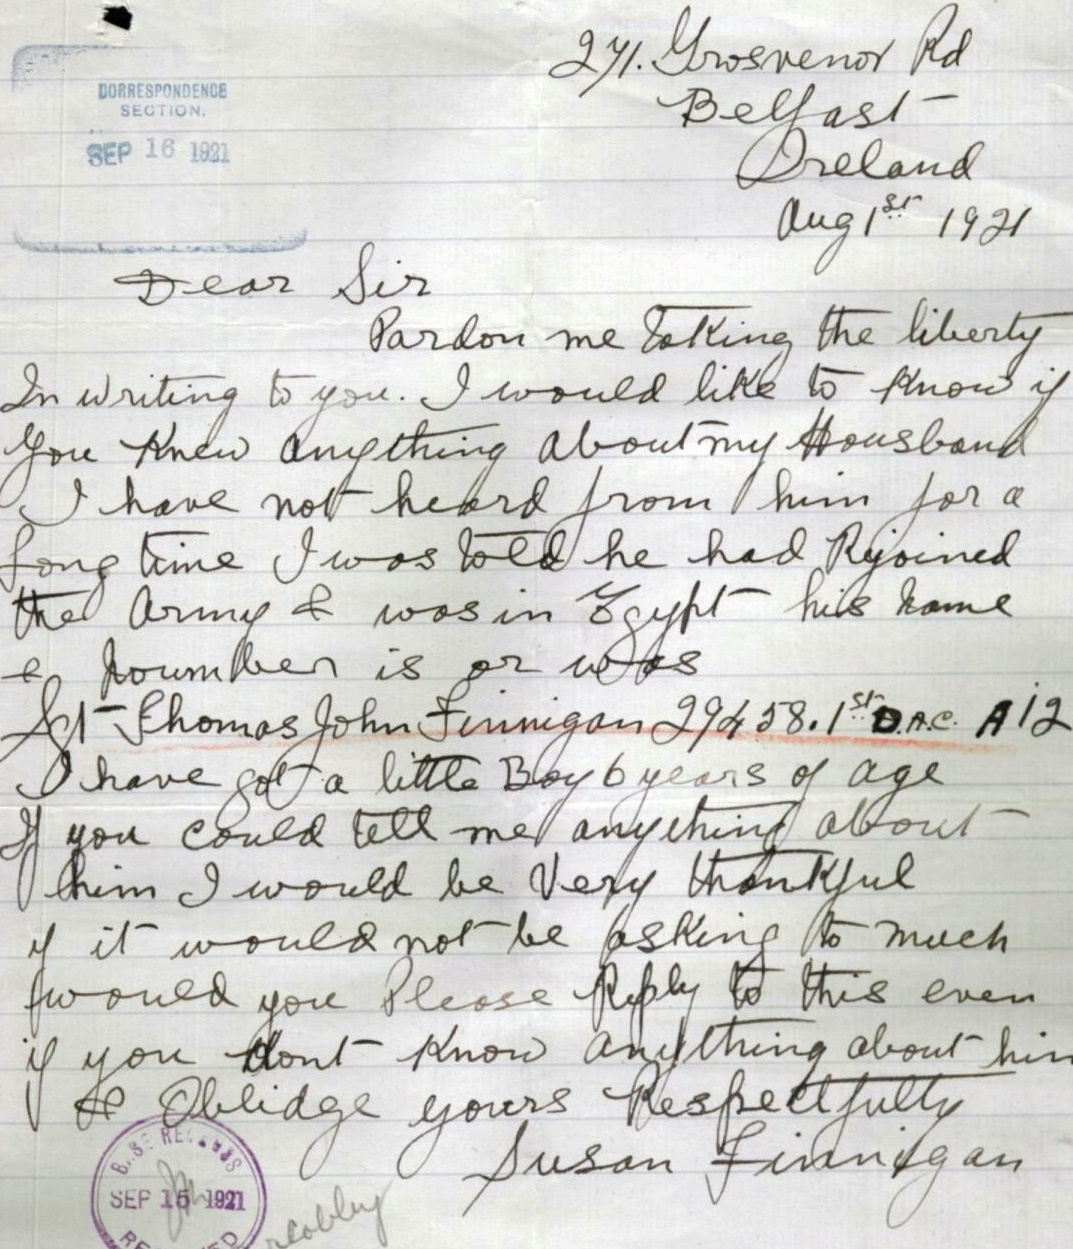 CORRESPONDENCE
SECTION.
SEP 16 1921
271. Grosvenor Rd
Belfast
Ireland
Aug 1st 1921
Dear Sir
Pardon me taking the liberty
In writing to you. I would like to know if
you knew anything about my Housband
I have not heard from him for a
long time I was told he had Rejoined
the Army & was in Egypt his name
& noumber is or was
Sgt Thomas John Finnigan 29458. 1st D.A.C. A12
I have got a little Boy 6 years of age
If you could tell me anything about
him I would be Very thankful
if it would not be asking to much
would you Please Reply to this even
if you dont know anything about him
& Oblidge yours Respectfully
Susan Finnigan
BASE RECORDS
SEP 15 1921
RECEIVED